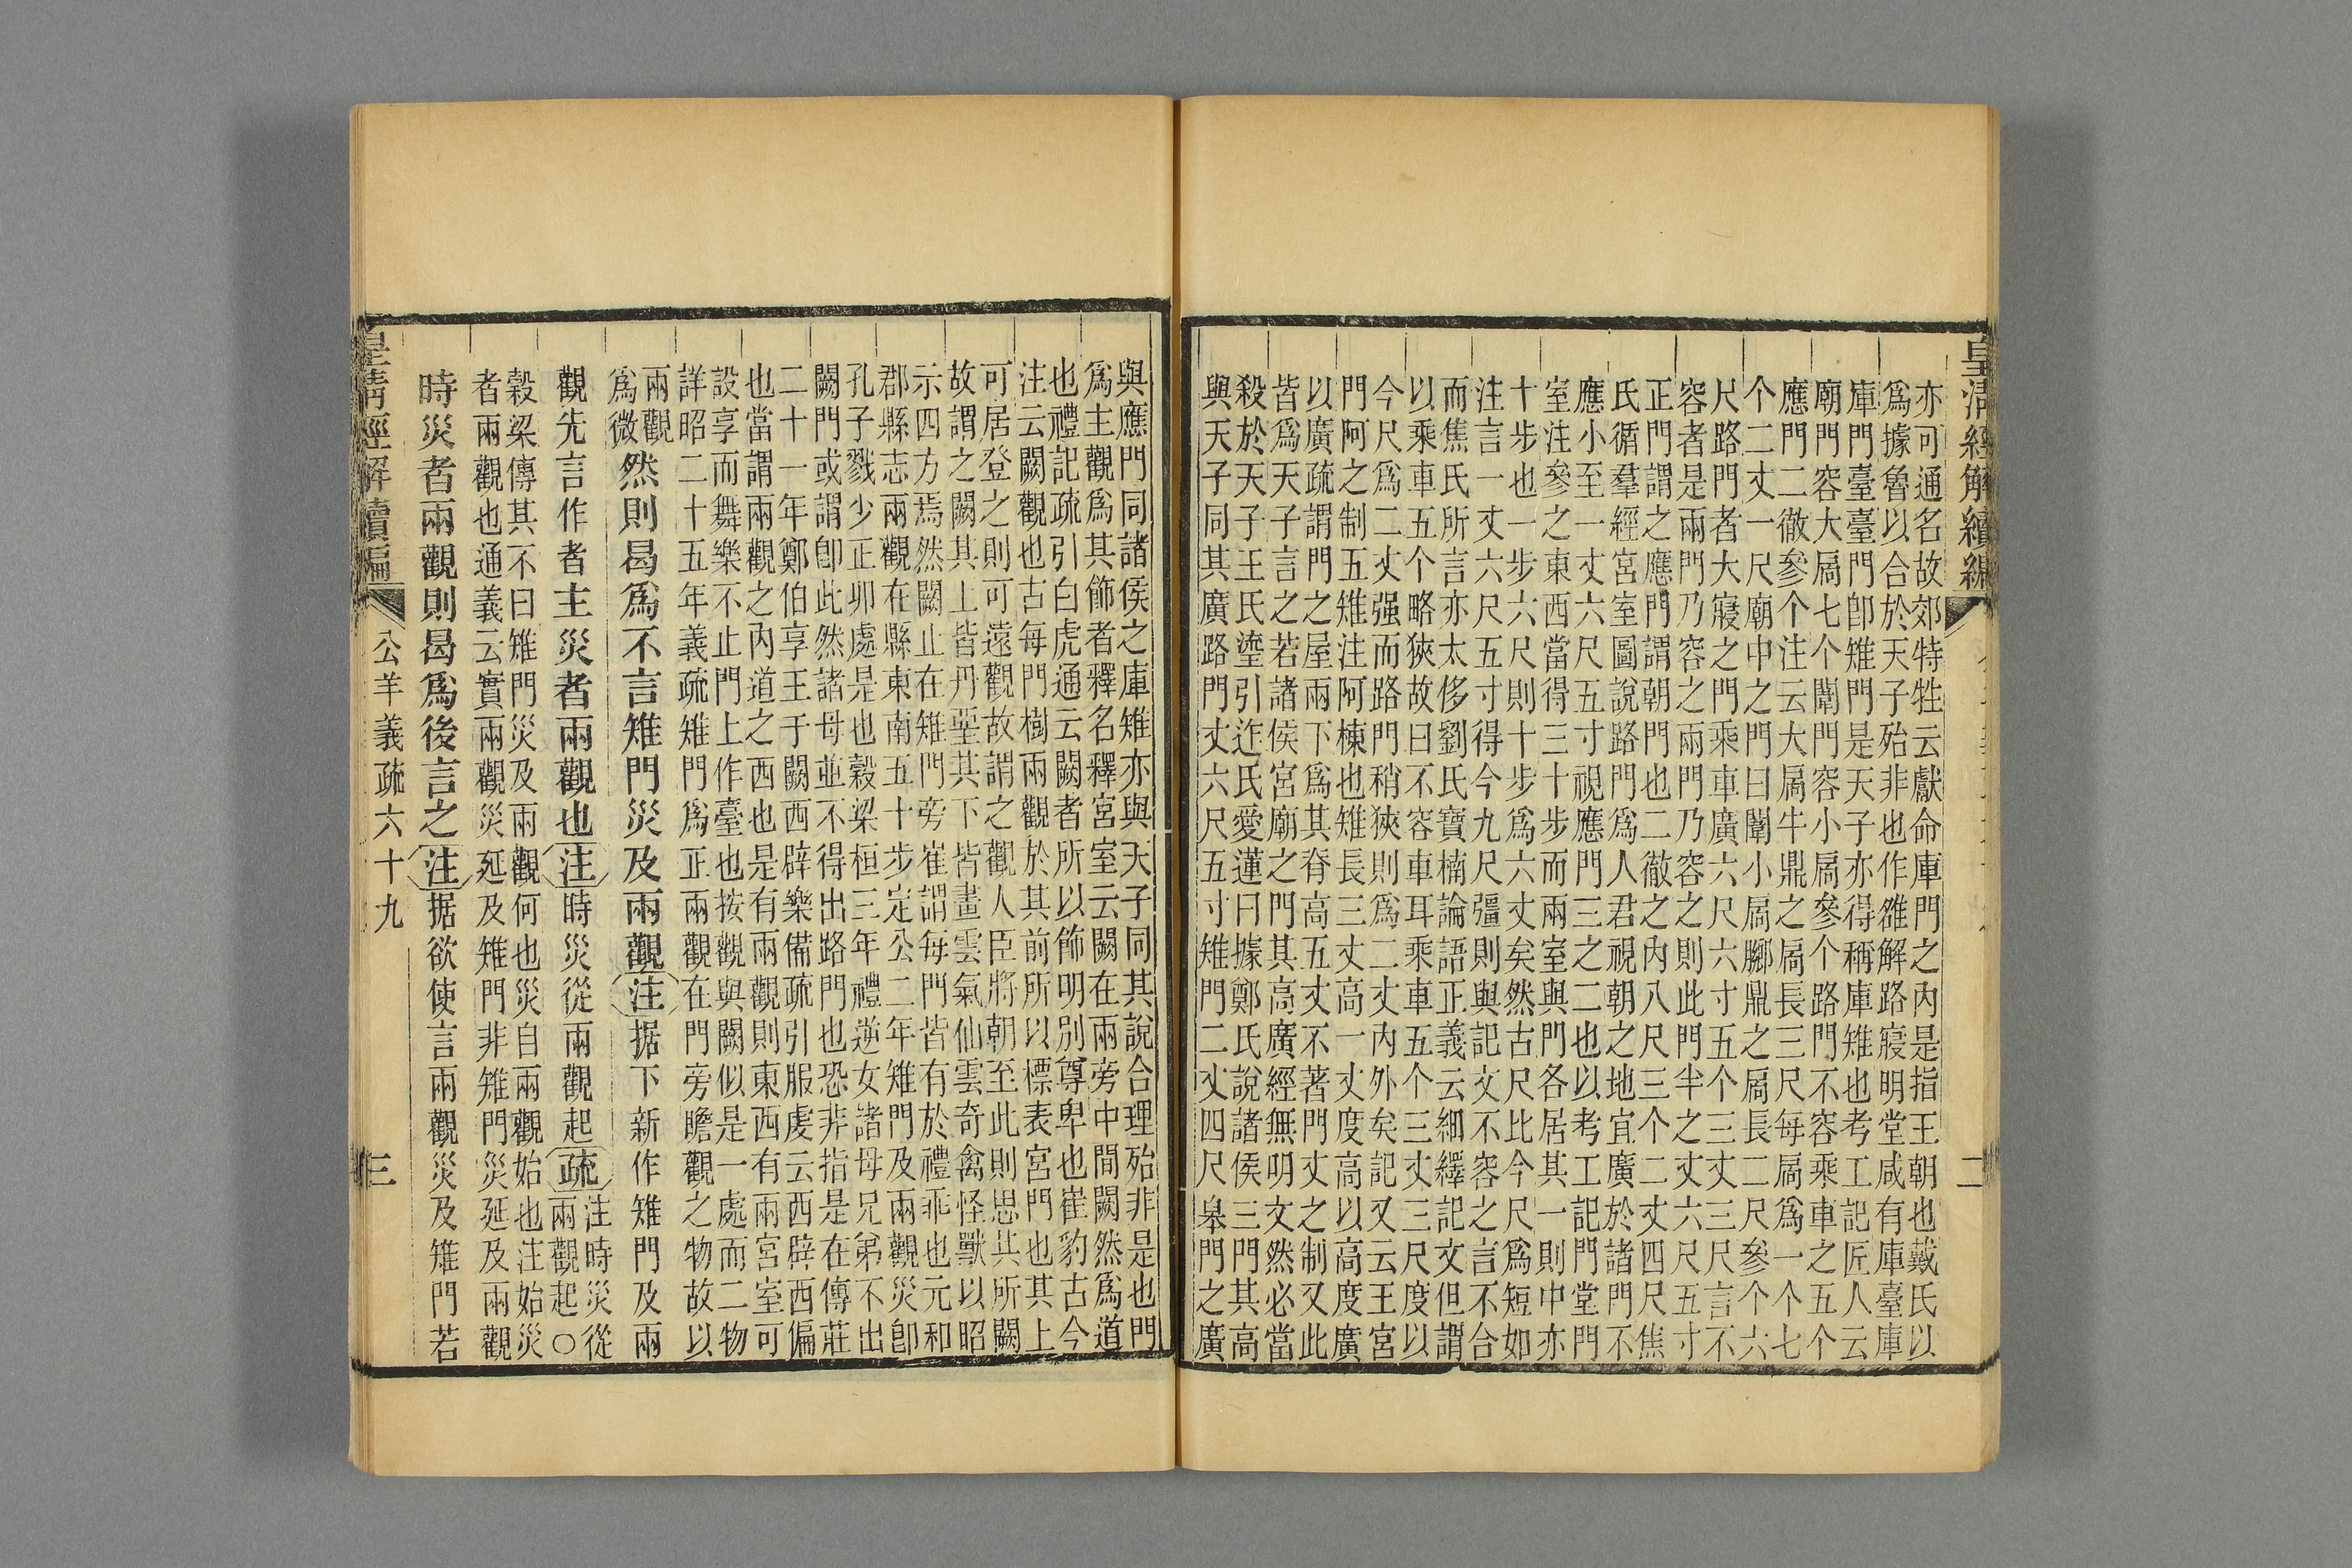 皇清經解續編
二
亦可通名故郊特牲云獻命庫門之內是指王朝也戴氏以
爲據魯以合於天子殆非也作雒解路寢明堂咸有庫臺庫
庫門臺臺門卽雉門是天子亦得稱庫雉也考工記匠人云
廟門容大扃七个闈門容小扃參个路門不容乘車之五个
應門二徹參个注云大扃牛鼎之扃長三尺每扃爲一个七
个二丈一尺廟中之門曰闈小扃膷鼎之扃長二尺參个六
尺路門者大寢之門乘車廣六尺六寸五个三丈三尺言不
容者是兩門乃容之兩門乃容之則此門半之丈六尺五寸
正門謂之應門謂朝門也二徹之內八尺三个二丈四尺焦
氏循羣經宮室圖說路門爲人君視朝之地宜廣於諸門不
應小至一丈六尺五寸視應門三之二也以考工記門堂門
室注參之東西當得三十步而兩室與門各居其一則中亦
十步也一步六尺則十步爲六丈矣然古尺比今尺爲短如
注言一丈六尺五寸得今九尺彊則與記文不容二之言不合
而焦氏所言亦太侈劉氏寶楠論語正義云細繹記文但謂
以乘車五个略狹故曰不容車耳乘車五个三丈三尺度以
今尺爲二丈强而路門稍狹則爲二丈內外矣記又云王宮
門阿之制五雉注阿棟也雉長三丈高一丈度高以高度廣
以廣疏謂門之屋兩下爲其脊高五丈不著門丈之制又此
皆爲天子言之若諸侯宮廟之門其高廣經無明文然必當
殺於天子王氏瑬引迮氏愛蓮曰據鄭氏說諸侯三門其高
與天子同其廣路門丈六尺五寸雉門二丈四尺皋門之廣
與應門同諸侯之庫雉亦與天子同其說合理殆非是也門
爲主觀爲其飾者釋名釋宮室云闕在兩旁中間闕然爲道
也禮記疏引白虎通云闕者所以飾明別尊卑也崔豹古今
注云闕觀也古每門樹兩觀於其前所以標表宮門也其上
可居登之則可遠觀故謂之觀人臣將朝至此則思其所闕
故謂之闕其上皆丹堊其下皆畫雲氣仙雲奇禽怪獸以昭
示四方焉然闕止在雉門旁崔謂每門皆有於禮乖也元和
郡縣志兩觀在縣東南五十步定公二年雉門及兩觀災卽
孔子戮少正卯處是也穀梁桓三年禮逆女諸母兄弟不出
闕門或謂卽此然諸母並不得出路門也恐非指是在傳莊
二十一年鄭伯享王于闕西辟樂備疏引服虔云西辟西偏
也當謂兩觀之內道之西也是有兩觀則東西有兩宮室可
設享而舞樂不止門上作臺也按觀與闕似是一處而二物
詳昭二十五年義疏雉門爲正兩觀在門旁瞻觀之物故以
兩觀
爲微
然則曷爲不言雉門災及兩觀注据下新作雉門及兩
觀先言作者主災者兩觀也注時災從兩觀起疏
注時災從
兩觀起○
穀梁傳其不曰雉門災及兩觀何也災自兩觀始也注始災
者兩觀也通義云實兩觀災延及雉門非雉門災延及兩觀
時災者兩觀則曷爲後言之注据欲使言兩觀災及雉門若
皇清經解續編
公羊義疏六十九
三